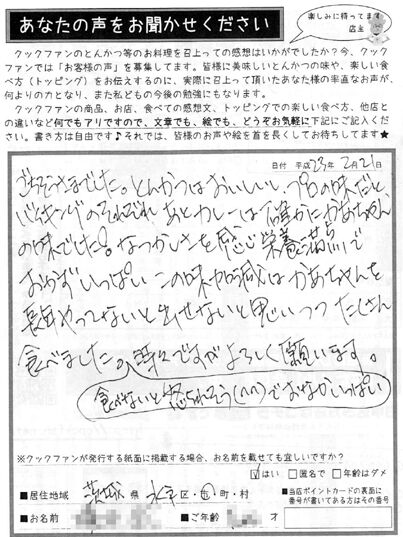 あなたの声をお聞かせください
楽しみに待ってます
店主
クックファンのとんかつ等のお料理を召上っての感想はいかがでしたか？今、クック
ファンでは「お客様の声」を募集してます。皆様に美味しいとんかつの味や、楽しい食
べ方（トッピング）をお伝えするのに、実際に召上って頂いたあなた様の率直なお声が、
何よりの力となり、また私どもの今後の勉強にもなります。
クックファンの商品、お店、食べての感想文、トッピングでの楽しい食べ方、他店と
の違いなど何でもアリですので、文章でも、絵でも、どうぞお気軽に下記にご記入くだ
さい。書き方は自由です♪それでは、皆様のお声や絵を首を長くしてお待ちしてます★
日付 平成23年2月21日
ごちそうさまでした。とんかつはおいしいし、プロの味だと
バイキングのそれぞれ あとカレーは確かにかあちゃん
の味でした。なつかしさを感じ栄養満点で
おかずいっぱい この味加減はかあちゃんを
長年やってないと出せないと思いつつ たくさん
食べました。 ですがよろしく願います。
食べないと怒られそう(^^)でおなかいっぱい
※クックファンが発行する紙面に掲載する場合、お名前を載せても宜しいですか？
☑はい □匿名で □年齢はダメ
■居住地域 茨城県 水戸 区・市・町・村
■当店ポイントカードの裏面に
番号が書いてある方はその番号
■お名前 ■ご年齢 才